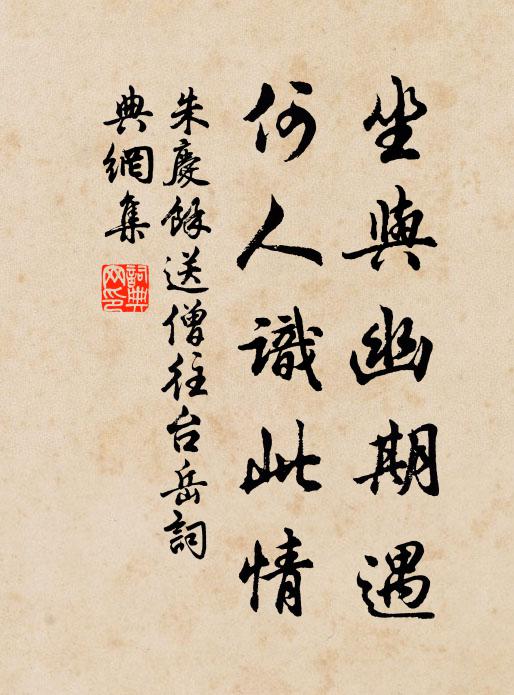 坐與幽期遇
何人識此情
朱慶餘送僧往台岳詞
典網集
詞典
网印